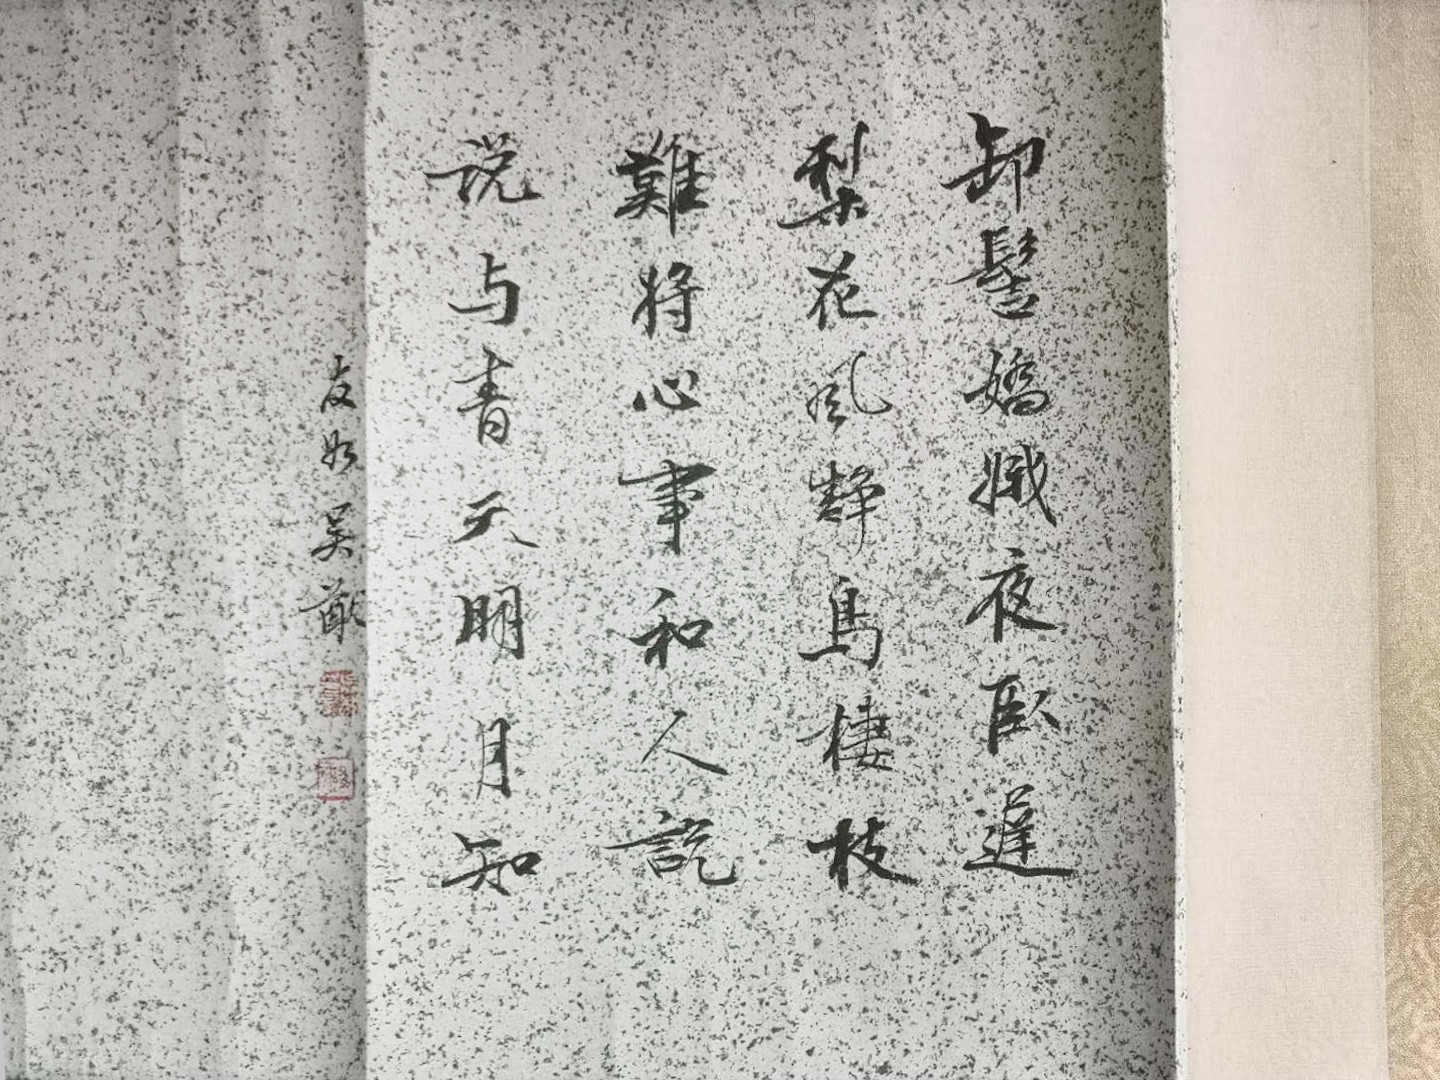 卸髻嬌娥夜臥遲
梨花風靜鳥棲枝
難將心事和人説
说与青天明月知
友如吴猷